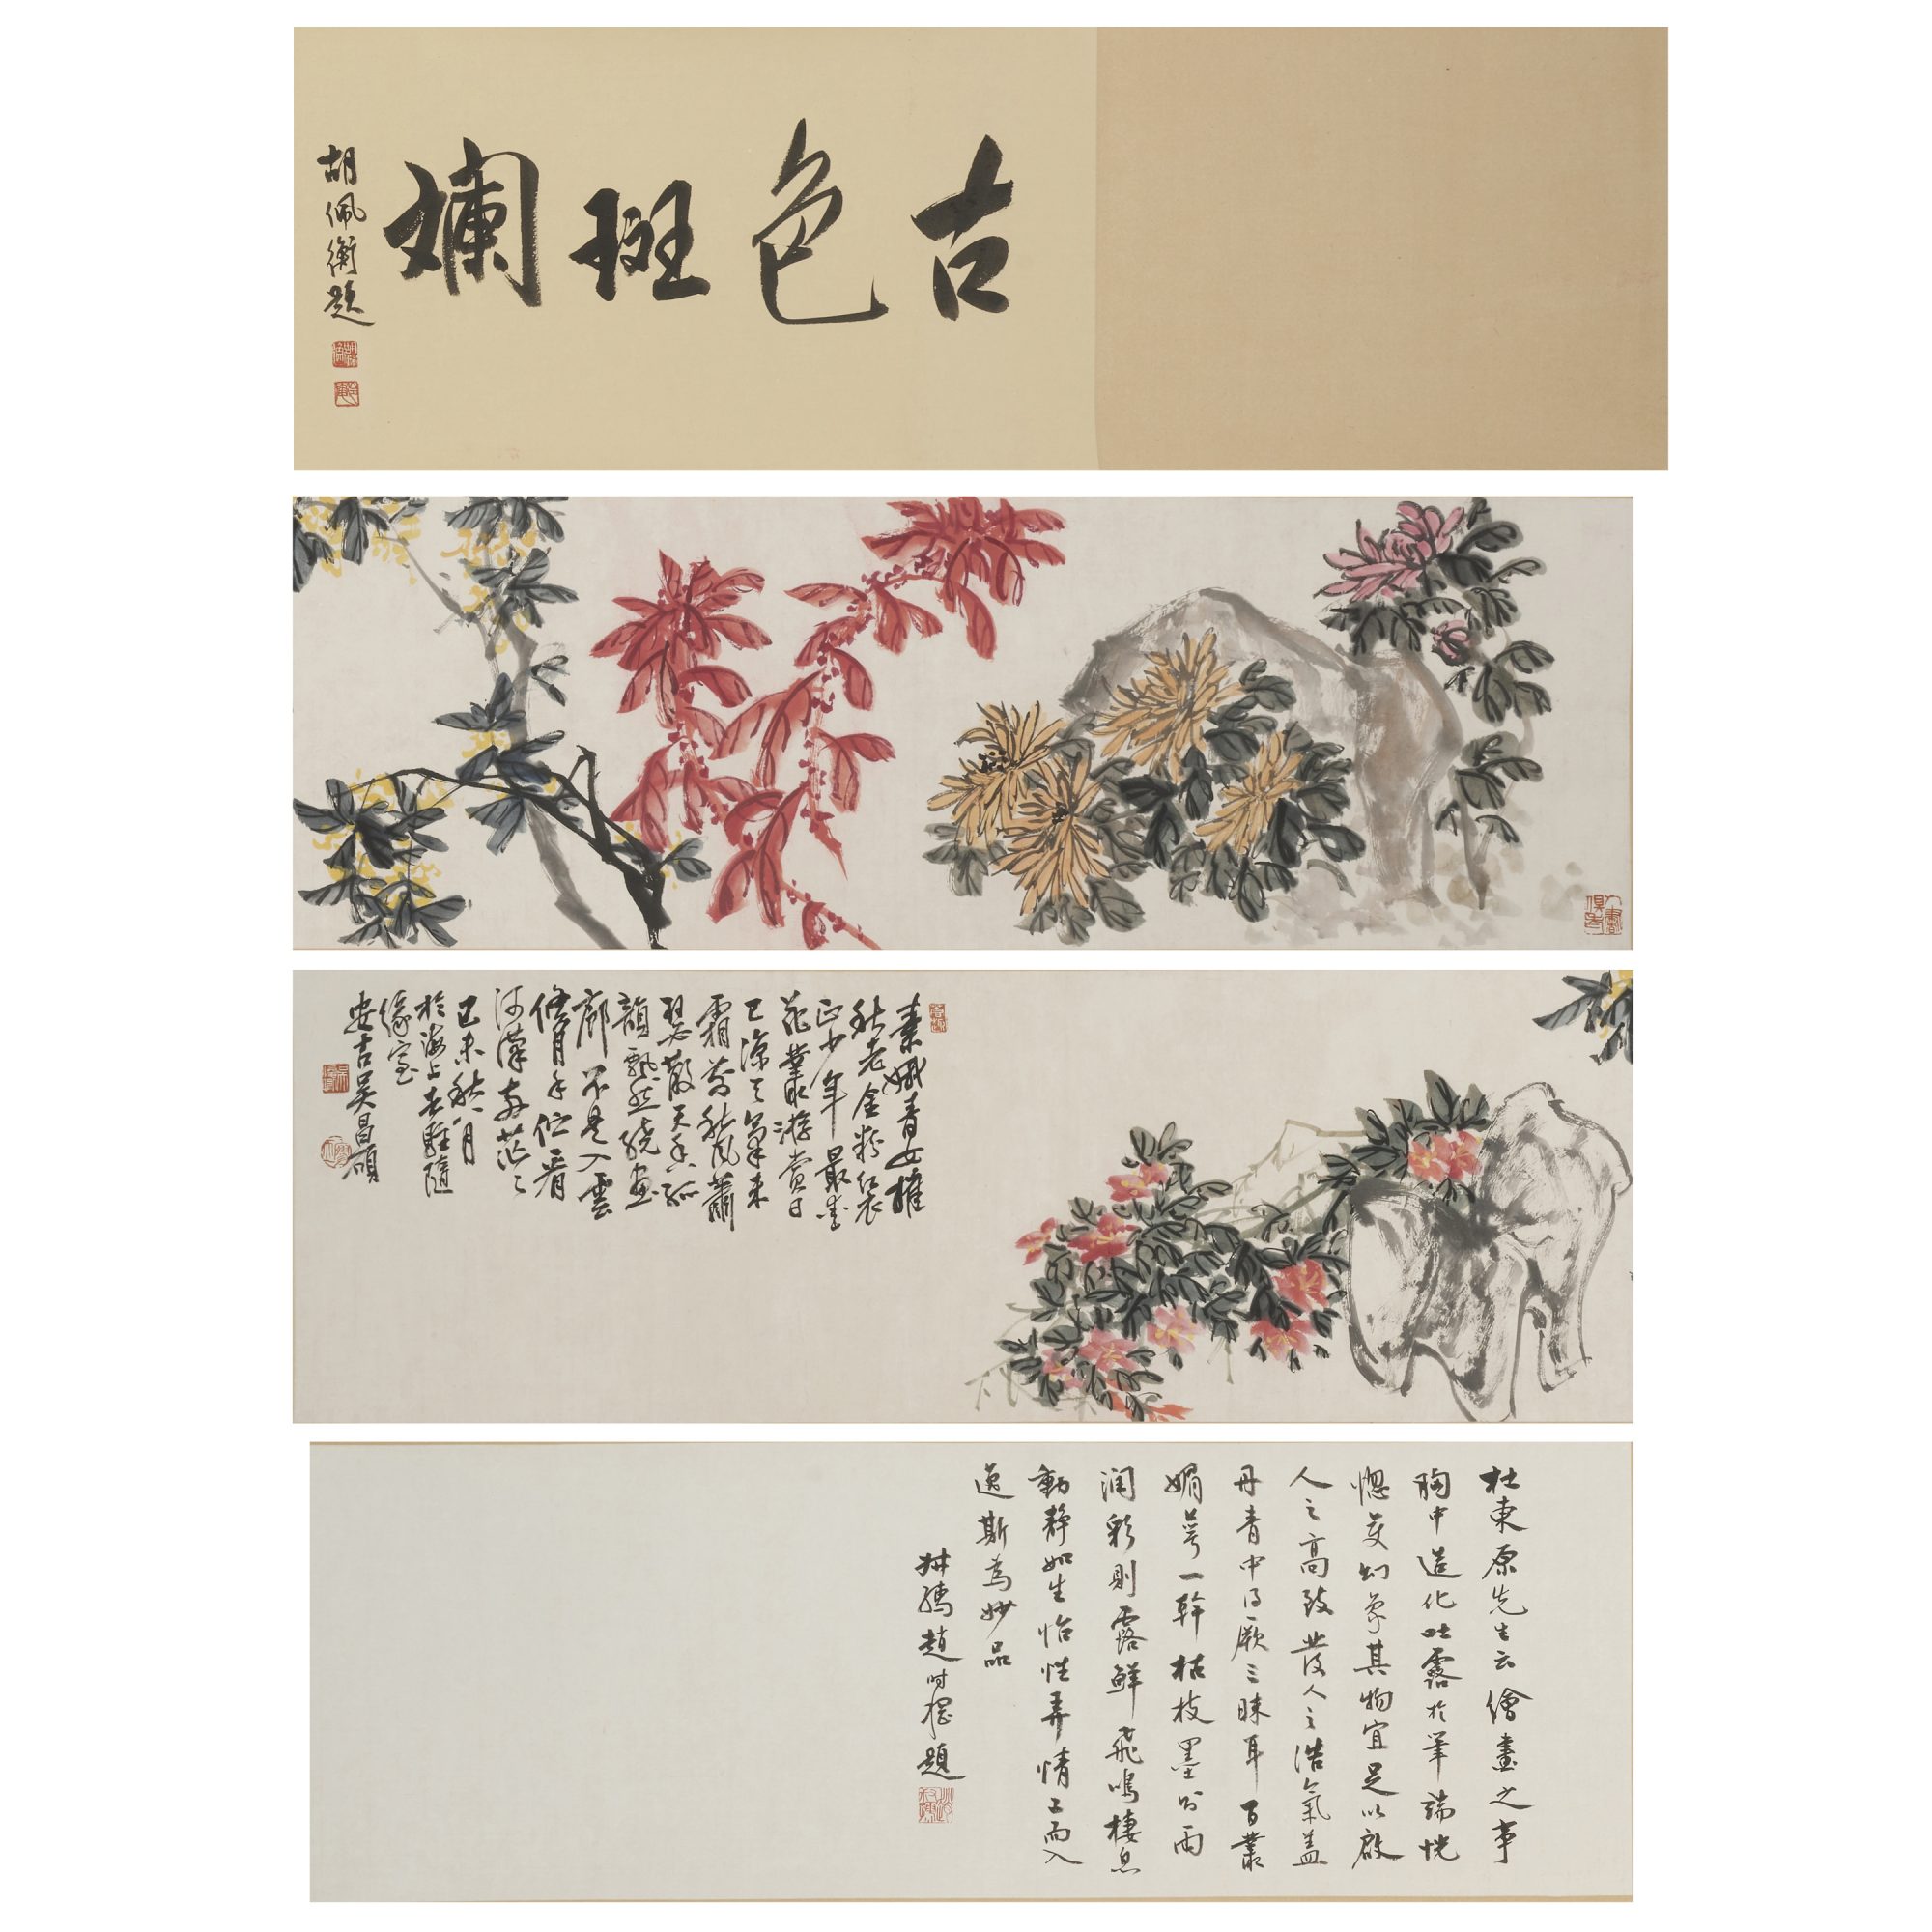 古色斑斕
胡佩衡題
素娥青女擁
秋老金粉紅裳
正少年最愛
花叢游賞日
已涼天氣未
霜前秋風蕭
瑟散天香孤
韻飄然繞畫
廊不是入雲
修月手但看
河漢茫々
己未秋八月
於海上去駐隨
緣室
安吉吴昌碩
杜東原先生云繪畫之事
胸中造化吐露於筆端恍
惚變幻象其物宜足以啟
人之高致發人之浩氣蓋
丹青中得厥三昧耳百叢
媚萼一幹枯枝墨則雨
潤彩則露鮮飛鳴棲息
動靜如生怡性弄情工而入
逸斯為妙品
叔孺趙時棡題